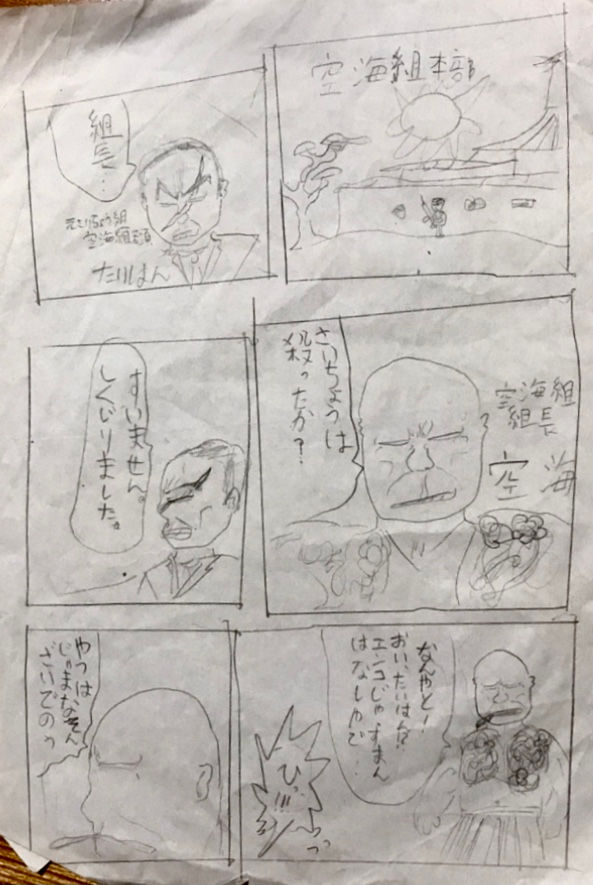 空海組本部
組長…
元さいちょう組
空海組
たいはん
空海組
組長
空海
さいちょうは
殺ったか？
すいません。
しくじりました。
なんやと！
おい、たいはん!?
エンコじゃすまん
はなしやで…
ひっ!!!
やつは
じゃまなそん
ざいでのぅ